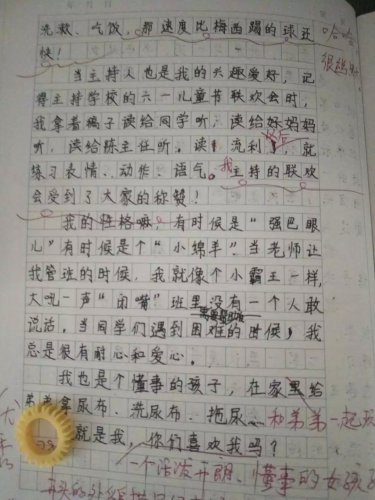 洗漱、吃饭,那速度比梅西踢的球还
快!
哈哈
很
当主持人也是我的兴趣爱好。记
得主持学校的六一儿童节联欢会时,
我拿着稿子读给同学听,读给好妈妈
听,读给陈主任听。读
以后
流利了,就
练习表情、动作、语气。我主持的联欢
会受到了大家的称赞!
我的性格嘛,有时候是“强巴眼
儿”有时候是个“小绵羊”。当老师让
我管班的时候,我就像个小霸王一样,
大吼一声“闭嘴”班里没有一个人敢
需要帮助
说话,当同学们遇到困难的时候,我
总是很有耐心和爱心。
我也是个懂事的孩子,在家里给
弟弟拿尿布、洗尿布、拖尿
和弟弟一起玩
就是我,你们喜欢我吗?
一个活泼开朗、懂事的女孩